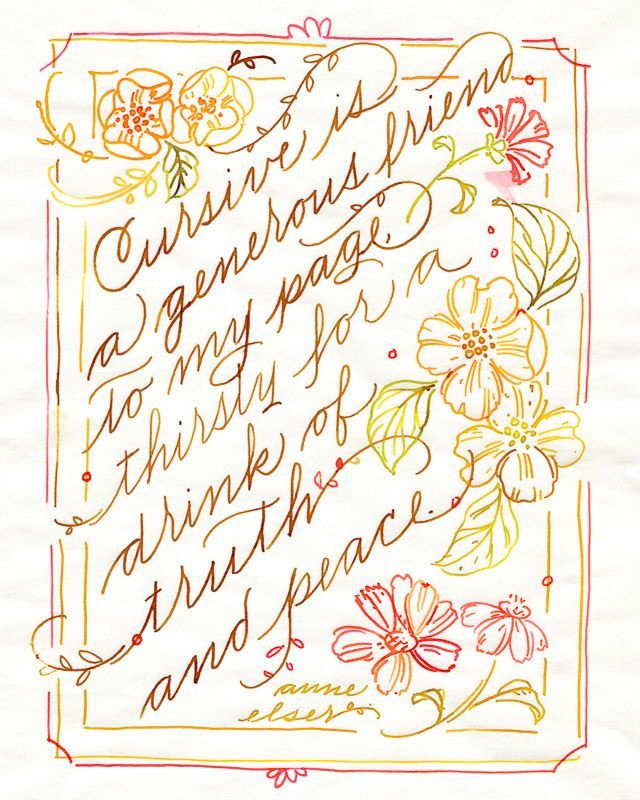 Cursive is
a generous friend
to my page
thirsty for a
drink of
truth
and peace.
anne
elser